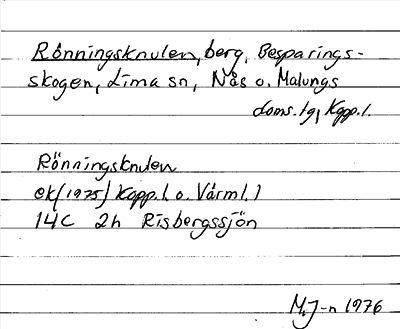 Rönningsknulen, berg, Besparings-
skogen, Lima sn, Nås o. Malungs
doms.lg, Kopp.l.
Rönningsknulen
ek (1975) Kopp.l. o. Värml.l
14C 2h Risbergssjön
M.J-n 1976